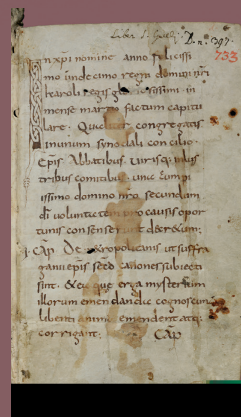 Liber S. Galli
D. n. 397.
733
In xp̄i nomine anno felicissi
mo undecimo regni domini nr̄i
karoli regis gloriosissimi in
mense martio factum capitu
lare. Qualiter congregatis
in unum synodali concilio.
Ep̄is Abbatibus virisq; inlus
tribus comitibus una cum pi
issimo domno nr̄o secundum
dī voluntatem pro causis opor
tunis consenserunt decretum.
CAP̄ De metropolitanis ut suffra
ganii ep̄is s̄c̄d̄ canones subiecti
sint. & ea que erga mysterium
illorum emendandae cognoscunt
libenti animo emendent atq;
corrigant. CAP̄